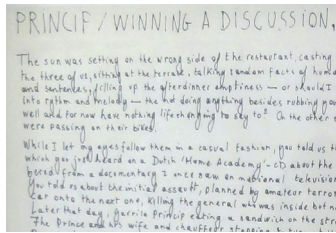 PRINCIP / WINNING A DISCUSSION,
The sun was setting on the wrong side of the restaurant, casting
the three of us, sitting at the terrace, talking random facts of
and sentences, filling up the afterdinner emptiness — or should I
into rythm and melody — the not doing anything besides rubbing you
well and for now have nothing life changing to say". On the other s
were passing on their bikes.
While I let my eyes follow them in a casual fashion, you told us t
which you just heard on a Dutch 'Home Academy'-CD about the
from a documentary I once saw on national television
You told us about the initial assault, planned by amateur terror
car onto the next one, killing the general who was inside but n
Later that day, Gavrilo Princip eating a sandwich on the str
The Prince and his wife and chauffeur stopping